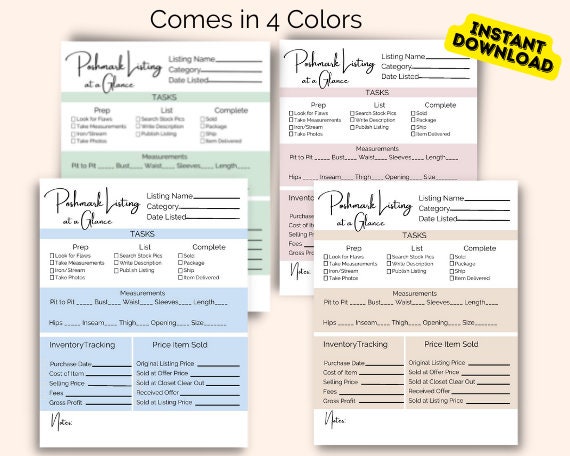 Comes in 4 Colors
INSTANT
DOWNLOAD
Poshmark Listing
at a Glance
Listing Name
Category
Date Listed
TASKS
Prep List Complete
Look for Flaws Search Stock Pics Sold
Take Measurements Write Description Package
Iron/Stream Publish Listing Ship
Take Photos Item Delivered
Measurements
Pit to Pit ____ Bust____ Waist____ Sleeves____ Length____
Poshmark Listing
at a Glance
Listing Name:
Category
Date Listed:
TASKS
Prep List Complete
Look for Flaws Search Stock Pics Sold
Take Measurements Write Description Package
Iron/Stream Publish Listing Ship
Take Photos Item Delivered
Measurements
Pit to Pit ____ Bust____ Waist____ Sleeves____ Length____
Hips ____ Inseam____ Thigh____ Opening____ Size
Poshmark Listing
at a Glance
Listing Name
Category
Date Listed
TASKS
Prep List Complete
Look for Flaws Search Stock Pics Sold
Take Measurements Write Description Package
Iron/Stream Publish Listing Ship
Take Photos Item Delivered
Measurements
Pit to Pit ____ Bust____ Waist____ Sleeves____ Length____
Hips ____ Inseam____ Thigh____ Opening____ Size______
InventoryTracking Price Item Sold
Purchase Date Original Listing Price
Cost of Item Sold at Offer Price
Selling Price Sold at Closet Clear Out
Fees Received Offer
Gross Profit Sold at Listing Price
Notes:
Poshmark Listing
at a Glance
Listing Name
Category
Date Listed
TASKS
Prep List Complete
Look for Flaws Search Stock Pics Sold
Take Measurements Write Description Package
Iron/Stream Publish Listing Ship
Take Photos Item Delivered
Measurements
Pit to Pit ____ Bust____ Waist____ Sleeves____ Length____
Hips ____ Inseam____ Thigh____ Opening____ Size______
InventoryTracking Price Item Sold
Purchase Date Original Listing Price
Cost of Item Sold at Offer Price
Selling Price Sold at Closet Clear Out
Fees Received Offer
Gross Profit Sold at Listing Price
Notes: